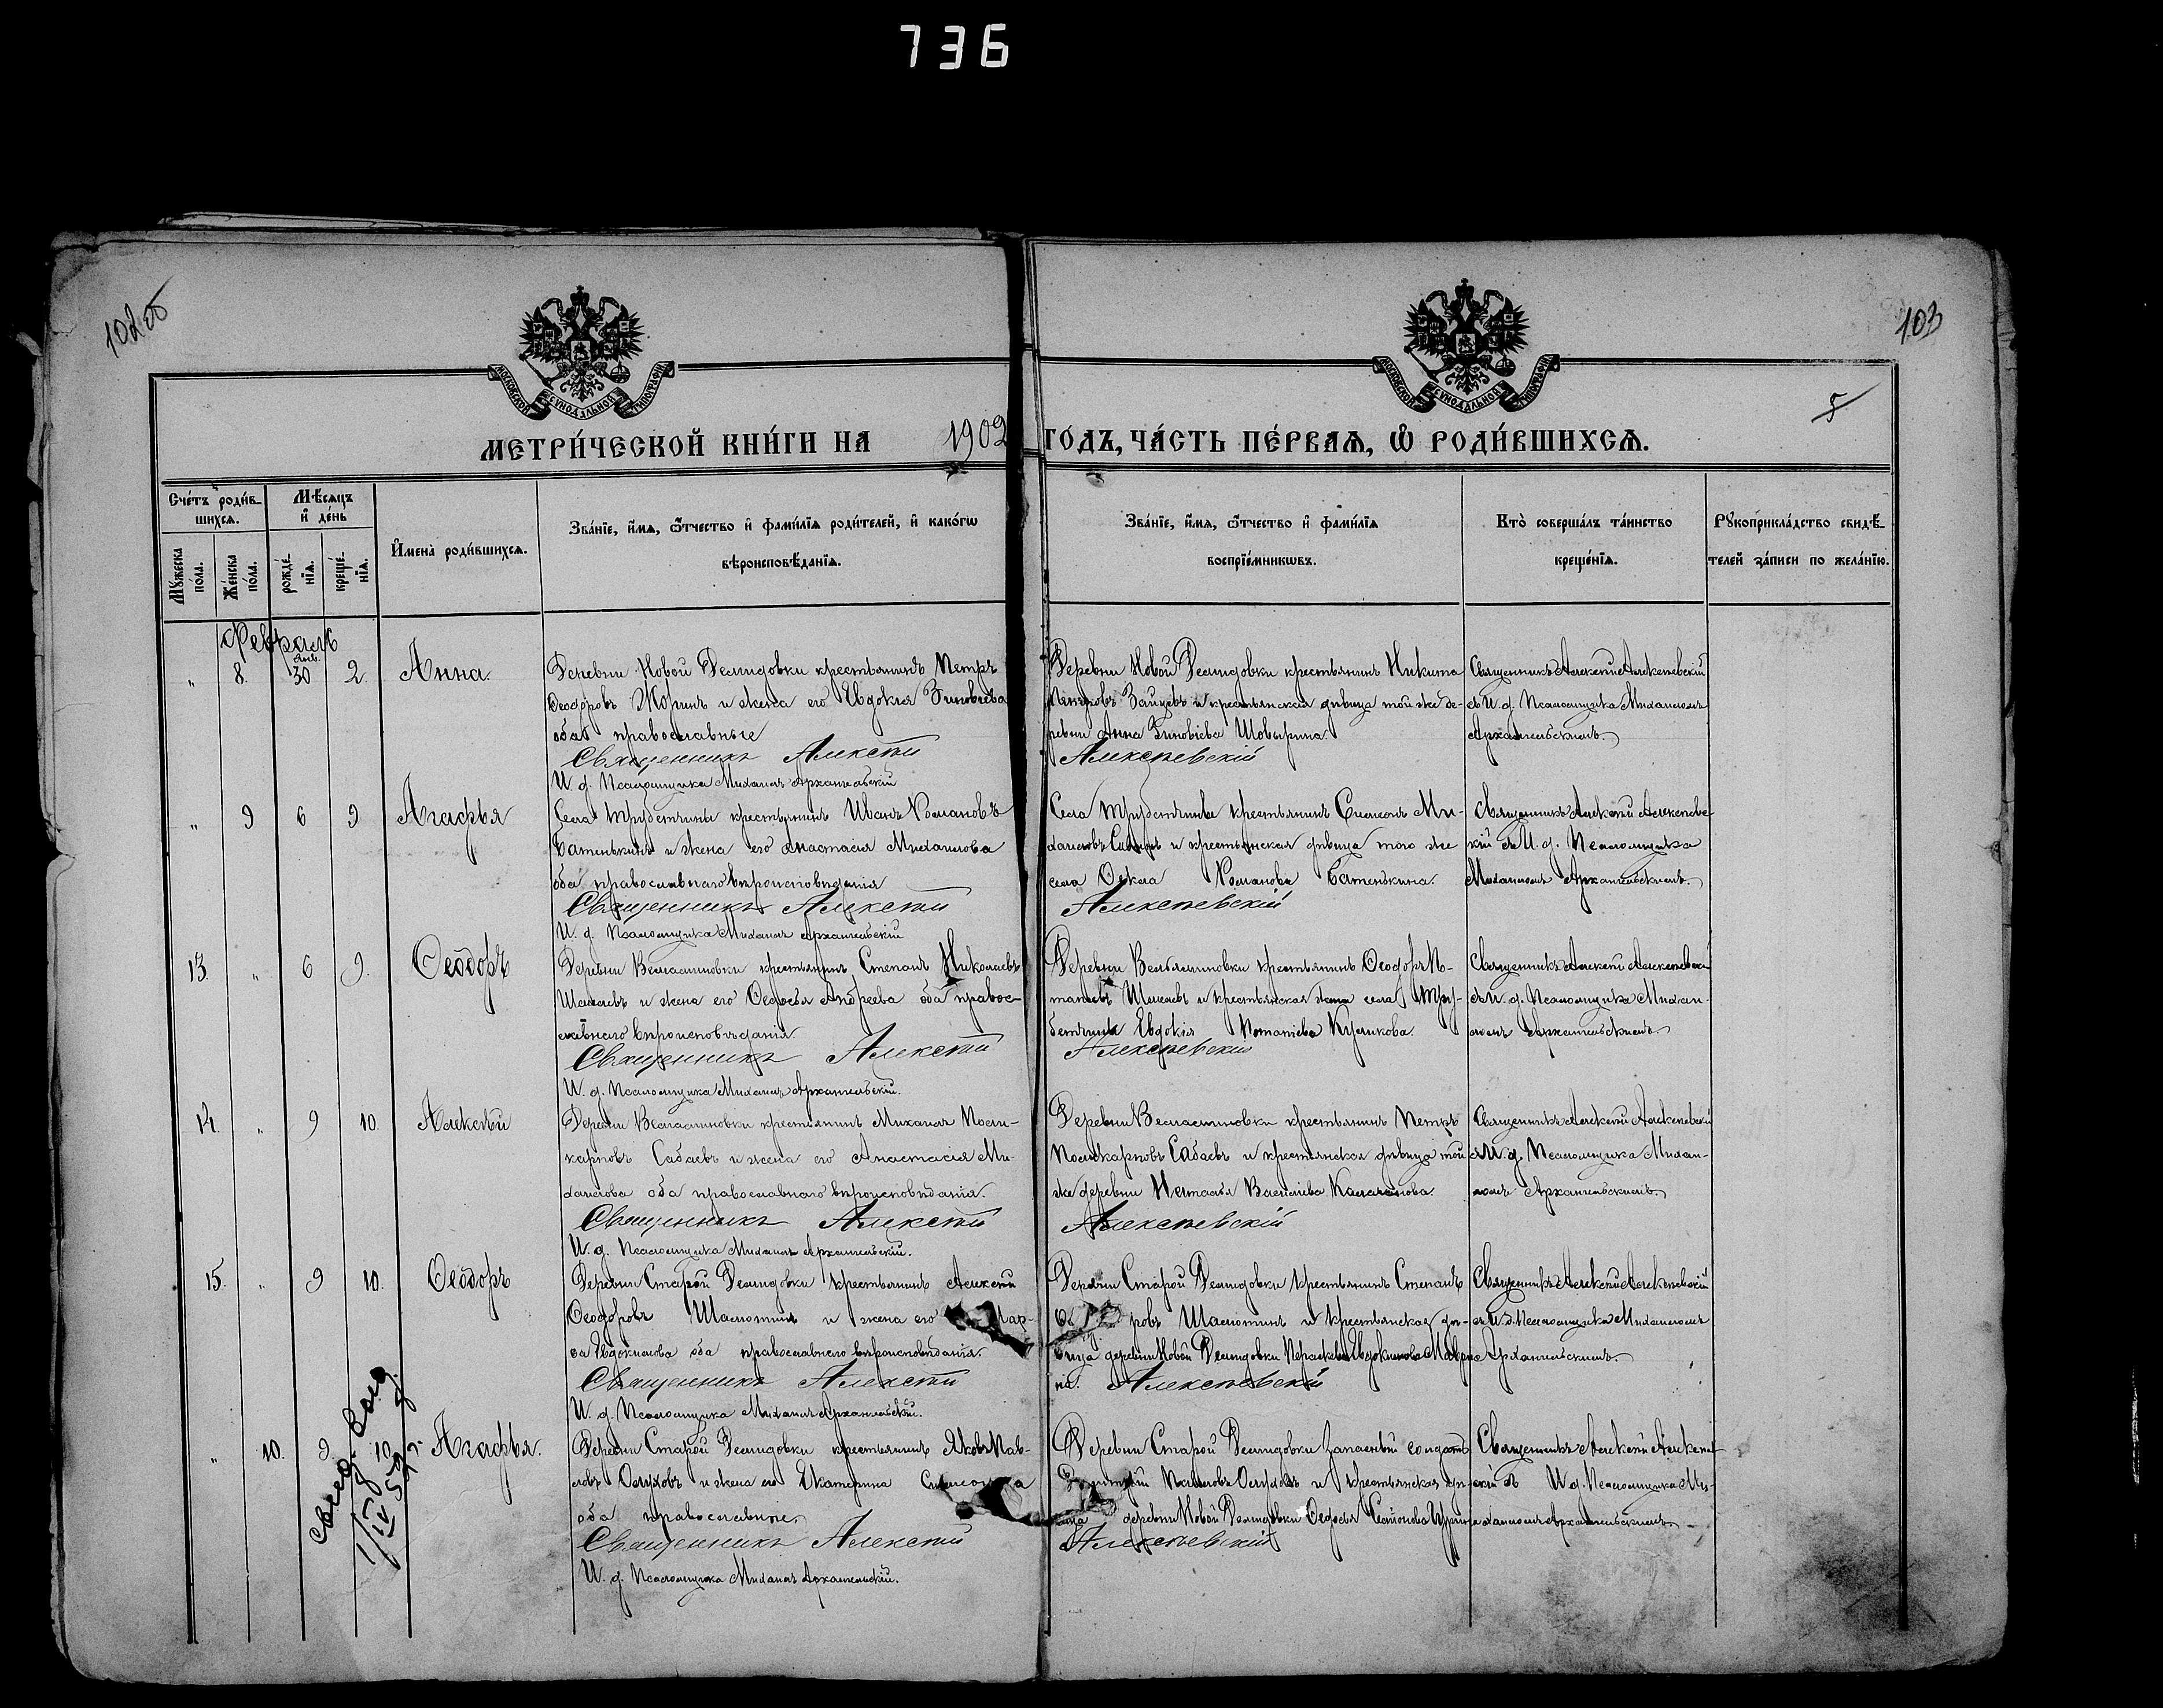 736
102об
103
5
МОСКОВСКОЙ СѴНОДАЛЬНОЙ ТИПОГРАФІИ
МОСКОВСКОЙ СѴНОДАЛЬНОЙ ТИПОГРАФІИ
МЕТРИ́ЧЕСКОЙ КНИ́ГИ НА 1902 ГОДЪ, ЧА́СТЬ ПЕ́РВАѦ, Ѡ҆ РОДИ́ВШИХСѦ.
Сче́тъ роди́в-
шихсѧ.
Мѣ́сѧцъ
и҆ де́нь
Мꙋ́жеска
по́ла.
Же́нска
по́ла.
рожде́-
нїѧ.
креще́-
нїѧ.
И҆мена̀ роди́вшихсѧ.
Зва́нїе, и҆́мѧ, ѻ҆́тчество и҆ фами́лїѧ роди́телей, и҆ како́гѡ
вѣроисповѣ́данїѧ.
Зва́нїе, и҆́мѧ, ѻ҆́тчество и҆ фами́лїѧ
воспрїе́мникѡвъ.
Кто̀ соверша́лъ та́инство
креще́нїѧ.
Рꙋкоприкла́дство свидѣ́-
телей за́писи по жела́нїю.
Февраль
„ 8. Янв. 30 2. Анна.
Деревни Новой Демидовки крестьянинъ Петръ
Ѳеодоровъ Жоринъ и жена его Евдокія Зиновіева
оба православные
Священникъ Алексѣй
И. д. Псаломщика Михаилъ Архангельскій
Деревни Новой Демидовки крестьянинъ Никита
Зайцевъ и крестьянская дѣвица той же де-
ревни Анна Зиновіева Шовырина.
Алексѣевскій
Священникъ Алексѣй Алексѣевскій
съ И. д. Псаломщика Михаиломъ
Архангельскимъ.
„ 9 6 9 Агафья
Села Трубетчины крестьянинъ Иванъ Романовъ
Батенькинъ и жена его Анастасія Михаилова
оба православнаго вѣроисповѣданія
Священникъ Алексѣй
И. д. Псаломщика Михаилъ Архангельскій
Села Трубетчины крестьянинъ Симеонъ Ми-
хаиловъ и крестьянская дѣвица того же
села Ѳекла Романова Батенькина.
Алексѣевскій
Священникъ Алексѣй Алексѣевс-
кій съ И. д. Псаломщика
Михаиломъ Архангельскимъ.
13. „ 6 9. Ѳеодоръ
Деревни Вельяминовки крестьянинъ Степанъ Николаевъ
и жена его Ѳедосья Андреева оба правос-
лавнаго вѣроисповѣданія.
Священникъ Алексѣй
И. д. Псаломщика Михаилъ Архангельскій.
Деревни Вельяминовки крестьянинъ Ѳеодоръ По-
таповъ и крестьянская жена села Тру-
бетчины Евдокія Потапіева Куликова.
Алексѣевскій
Священникъ Алексѣй Алексѣевскій
съ И. д. Псаломщика Михаи-
ломъ Архангельскимъ.
14. „ 9 10. Алексѣй
Деревни Вельяминовки крестьянинъ Михаилъ Поли-
карповъ Сабаевъ и жена его Анастасія Ми-
хаилова оба православнаго вѣроисповѣданія.
Священникъ Алексѣй
И. д. Псаломщика Михаилъ Архангельскій.
Деревни Вельяминовки крестьянинъ Петръ
Поликарповъ Сабаевъ и крестьянская дѣвица той
же деревни Наталья Василіева
Алексѣевскій
Священникъ Алексѣй Алексѣевскій
съ И. д. Псаломщика Михаи-
ломъ Архангельскимъ.
15. „ 9 10. Ѳеодоръ
Деревни Старой Демидовки крестьянинъ Алексѣй
Ѳеодоровъ Шамотинъ и жена его Мар-
ѳа Евдокимова оба православнаго вѣроисповѣданія.
Священникъ Алексѣй
И. д. Псаломщика Михаилъ Архангельскій.
Деревни Старой Демидовки крестьянинъ Степанъ
ровъ Шамотинъ и крестьянская дѣ-
вица деревни Новой Демидовки Параскева Евдокимова Маври-
на. Алексѣевскій
Священникъ Алексѣй Алексѣевскій
съ И. д. Псаломщика Михаиломъ
Архангельскимъ.
„ 10. 9 10 Агафья.
Деревни Старой Демидовки крестьянинъ Яковъ Пав-
ловъ Осиповъ и жена его Екатерина
оба православные.
Священникъ Алексѣй
И. д. Псаломщика Михаилъ Архангельскій.
Деревни Старой Демидовки запасный солдатъ
Димитрій Павловъ Осиповъ и крестьянская дѣ-
вица деревни Новой Демидовки Ѳедосья
Алексѣевскій
Священникъ Алексѣй Алексѣев-
скій съ И. д. Псаломщика Ми-
хаиломъ Архангельскимъ.